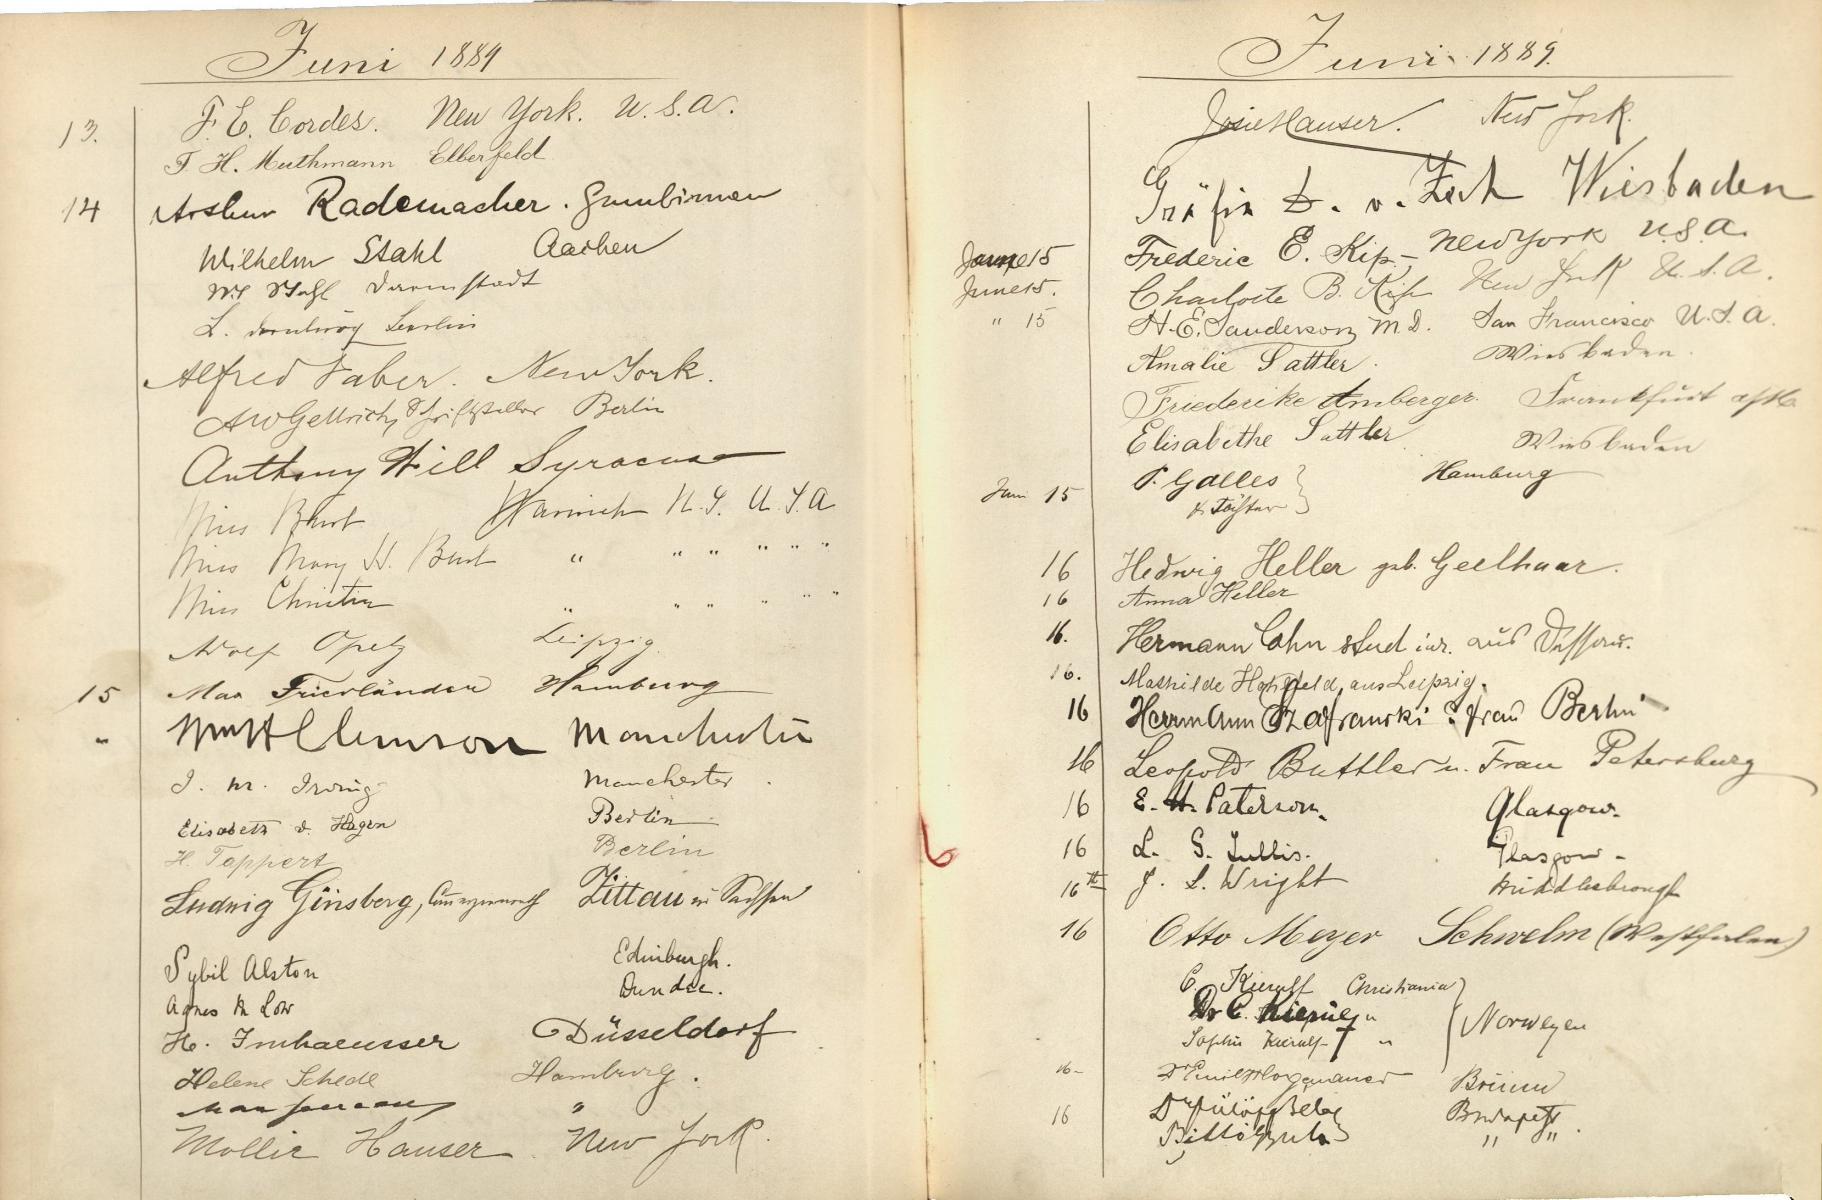 Juni 1889
13. F. E. Cordes. New York. U.S.A.
F. H. Muthmann Elberfeld
14 Arthur Rademacher. Gumbinnen
Wilhelm Stahl Aachen
Darmstadt
L. Berlin
Alfred Faber. New York.
Schriftsteller Berlin
Anthony Hill Syracuse
Miss Burt Warwick N.Y. U.S.A
Miss Mary H. Burt " " " " " "
Miss " " " " " "
Adolf Opetz Leipzig.
15 Max Friedländer Hamburg
" Manchester
J. W. Irving Manchester.
Elisabeth v. Hagen Berlin
H. Tappert Berlin
Ludwig Ginsberg, Zittau in Sachsen
Sybil Alston Edinburgh.
Agnes M Low Dundee.
H. Imhaeusser Düsseldorf
Helene Schede Hamburg.
"
Mollie Hauser. New York.
Juni 1889.
Josie Hauser. New York.
Gräfin D. v. Zech Wiesbaden
June 15 Frederic E. Kip - New York U.S.A.
June 15. Charlotte B. Kip New York U.S.A.
" 15 H. E. Sanderson M.D. San Francisco U.S.A.
Amalie Sattler. Wiesbaden.
Friederike Amberger. Frankfurt a/M
Elisabethe Sattler Wiesbaden
Juni 15 P. Galles Hamburg
& Töchter
16 Hedwig Heller geb. Geelhaar.
16 Anna Heller
16. Hermann Cohn stud. iur. aus Dessau.
16. Mathilde aus Leipzig.
16 Herrmann Szafranski & Frau Berlin
16 Leopold Buttler u. Frau Petersburg
16 E. H. Paterson. Glasgow.
16 L. S. Tullis. Glasgow -
16th J. L. Wright Middlesbrough
16 Otto Meyer Schwelm (Westfalen)
C. Kierulf Christiania
Dr C. Kierulf " Norwegen
Sophie Kierulf "
16 - Dr Emil Brünn
16 Dr Fülöp Béla Budapest
Bittó Gyula " ".